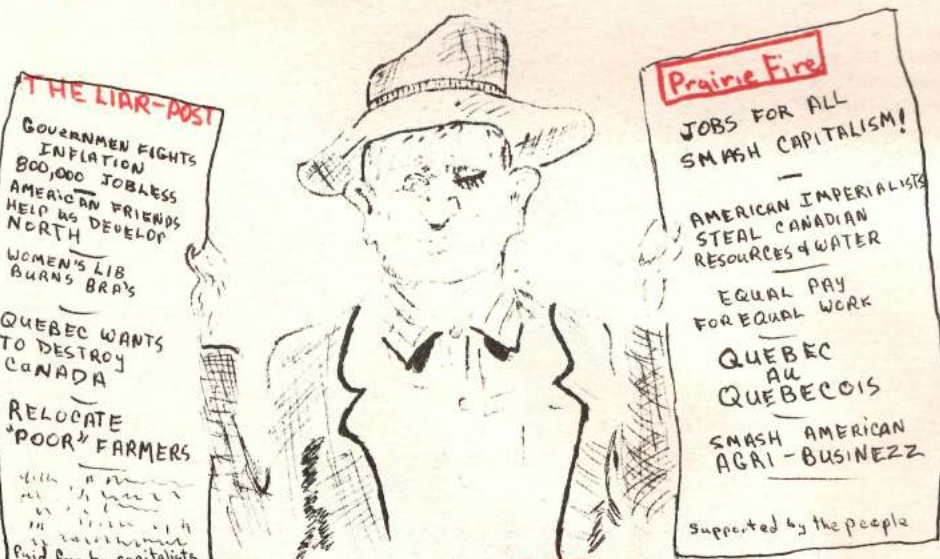 THE LIAR-POST
GOVERNMEN FIGHTS
INFLATION
800,000 JOBLESS
AMERICAN FRIENDS
HELP US DEVELOP
NORTH
WOMEN'S LIB
BURNS BRA'S
QUEBEC WANTS
TO DESTROY
CANADA
RELOCATE
"POOR" FARMERS
Paid for by capitalists
Prairie Fire
JOBS FOR ALL
SMASH CAPITALISM!
AMERICAN IMPERIALISTS
STEAL CANADIAN
RESOURCES & WATER
EQUAL PAY
FOR EQUAL WORK
QUEBEC
AU
QUEBECOIS
SMASH AMERICAN
AGRI-BUSINEZZ
supported by the people